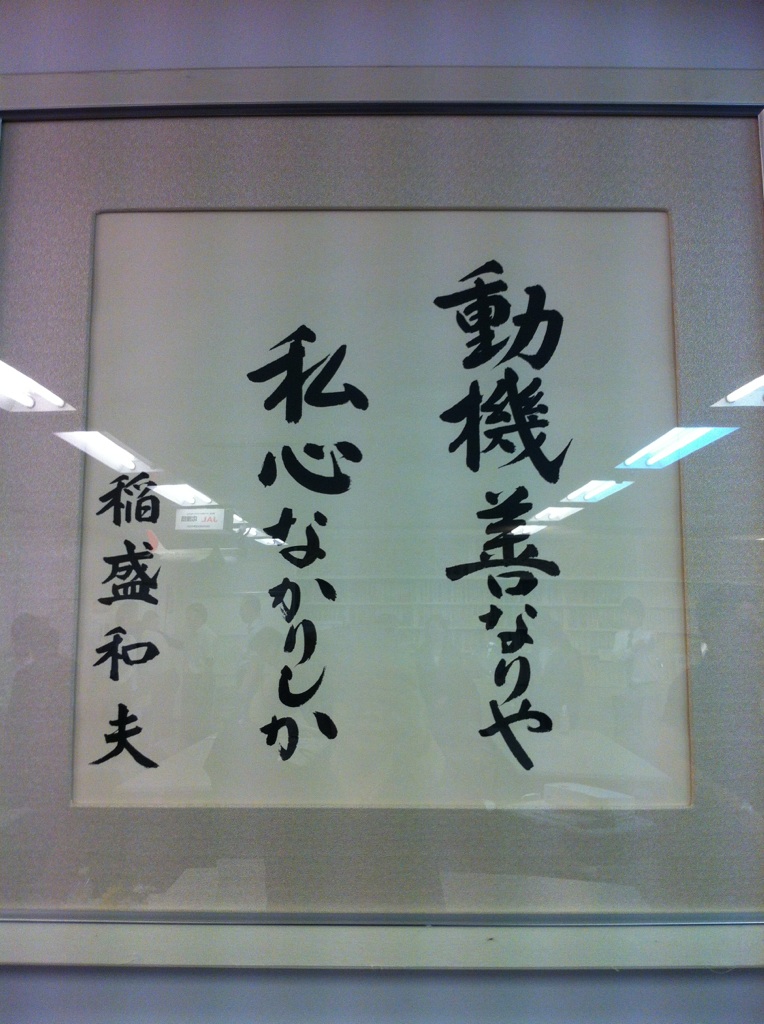 動機善なりや
私心なかりしか
稲盛和夫
JAL